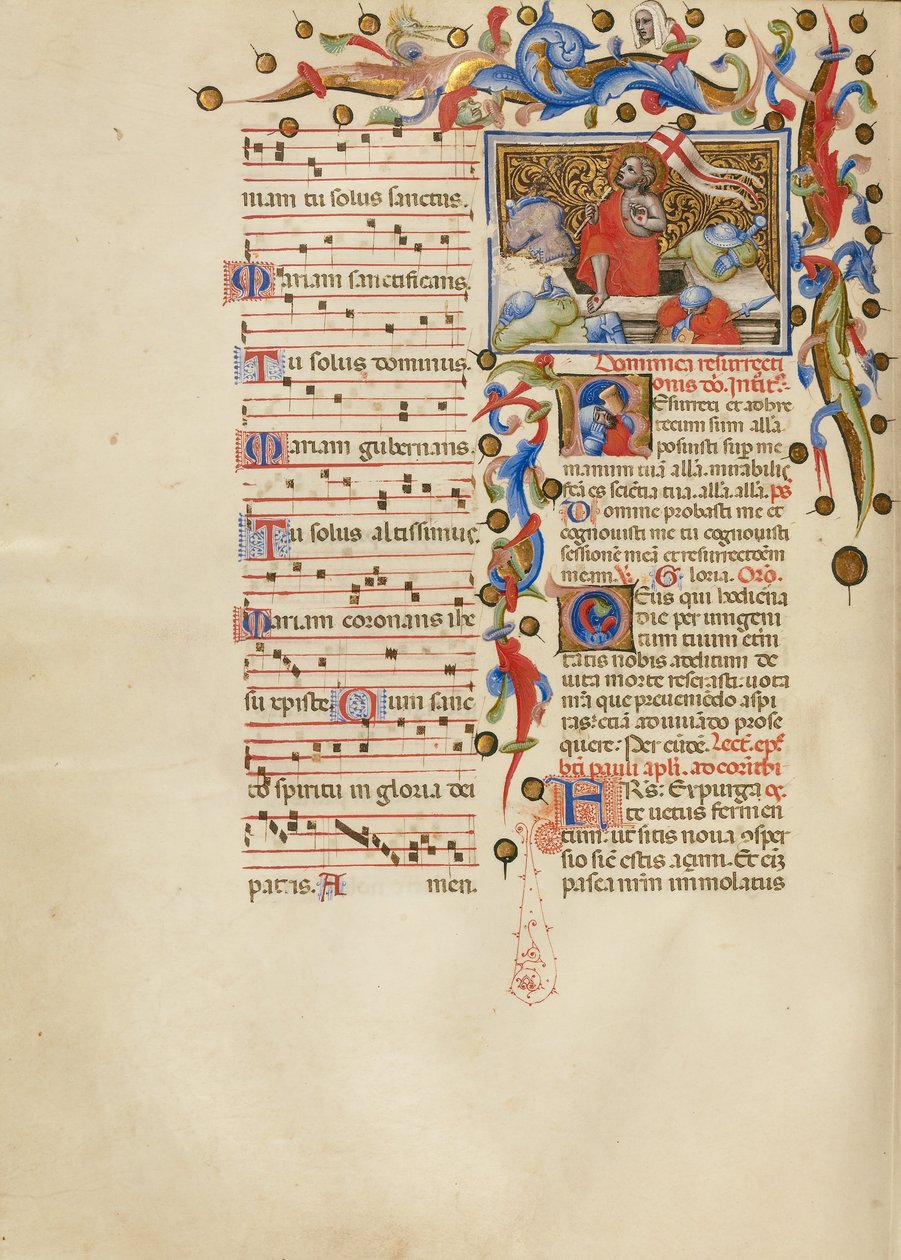 niam tu solus sanctus.
Mariam sanctificans.
Tu solus dominus.
Mariam gubernans.
Tu solus altissimus.
Mariam coronans ihe
su xpiste Cum sanc
to spiritu in gloria dei
patris. A men.
Dominica resurrecti
onis
Resurrexi et adhuc
tecum sum alla.
posuisti sup me
manum tuã alla. mirabilis
fcã es sciẽtia tua. alla. alla. ps
Domine probasti me et
cognouisti me tu cognouisti
sessionẽ meã et resurrectõem
meam. V. Gloria. Oro.
Deus qui hodierna
die per unigeni
tum tuum etni
tatis nobis aditum de
uicta morte reserasti: uota
nrã que preueniẽdo aspi
ras: etiã adiuuãdo prose
quere. Per eũdẽ. Lect. epl
bti pauli apli. ad corinthi
FRs. Expurga
te uetus fermen
tum. ut sitis noua ɔsper
sio sic̃ estis açimi. Et ei3
pasca nrm immolatus